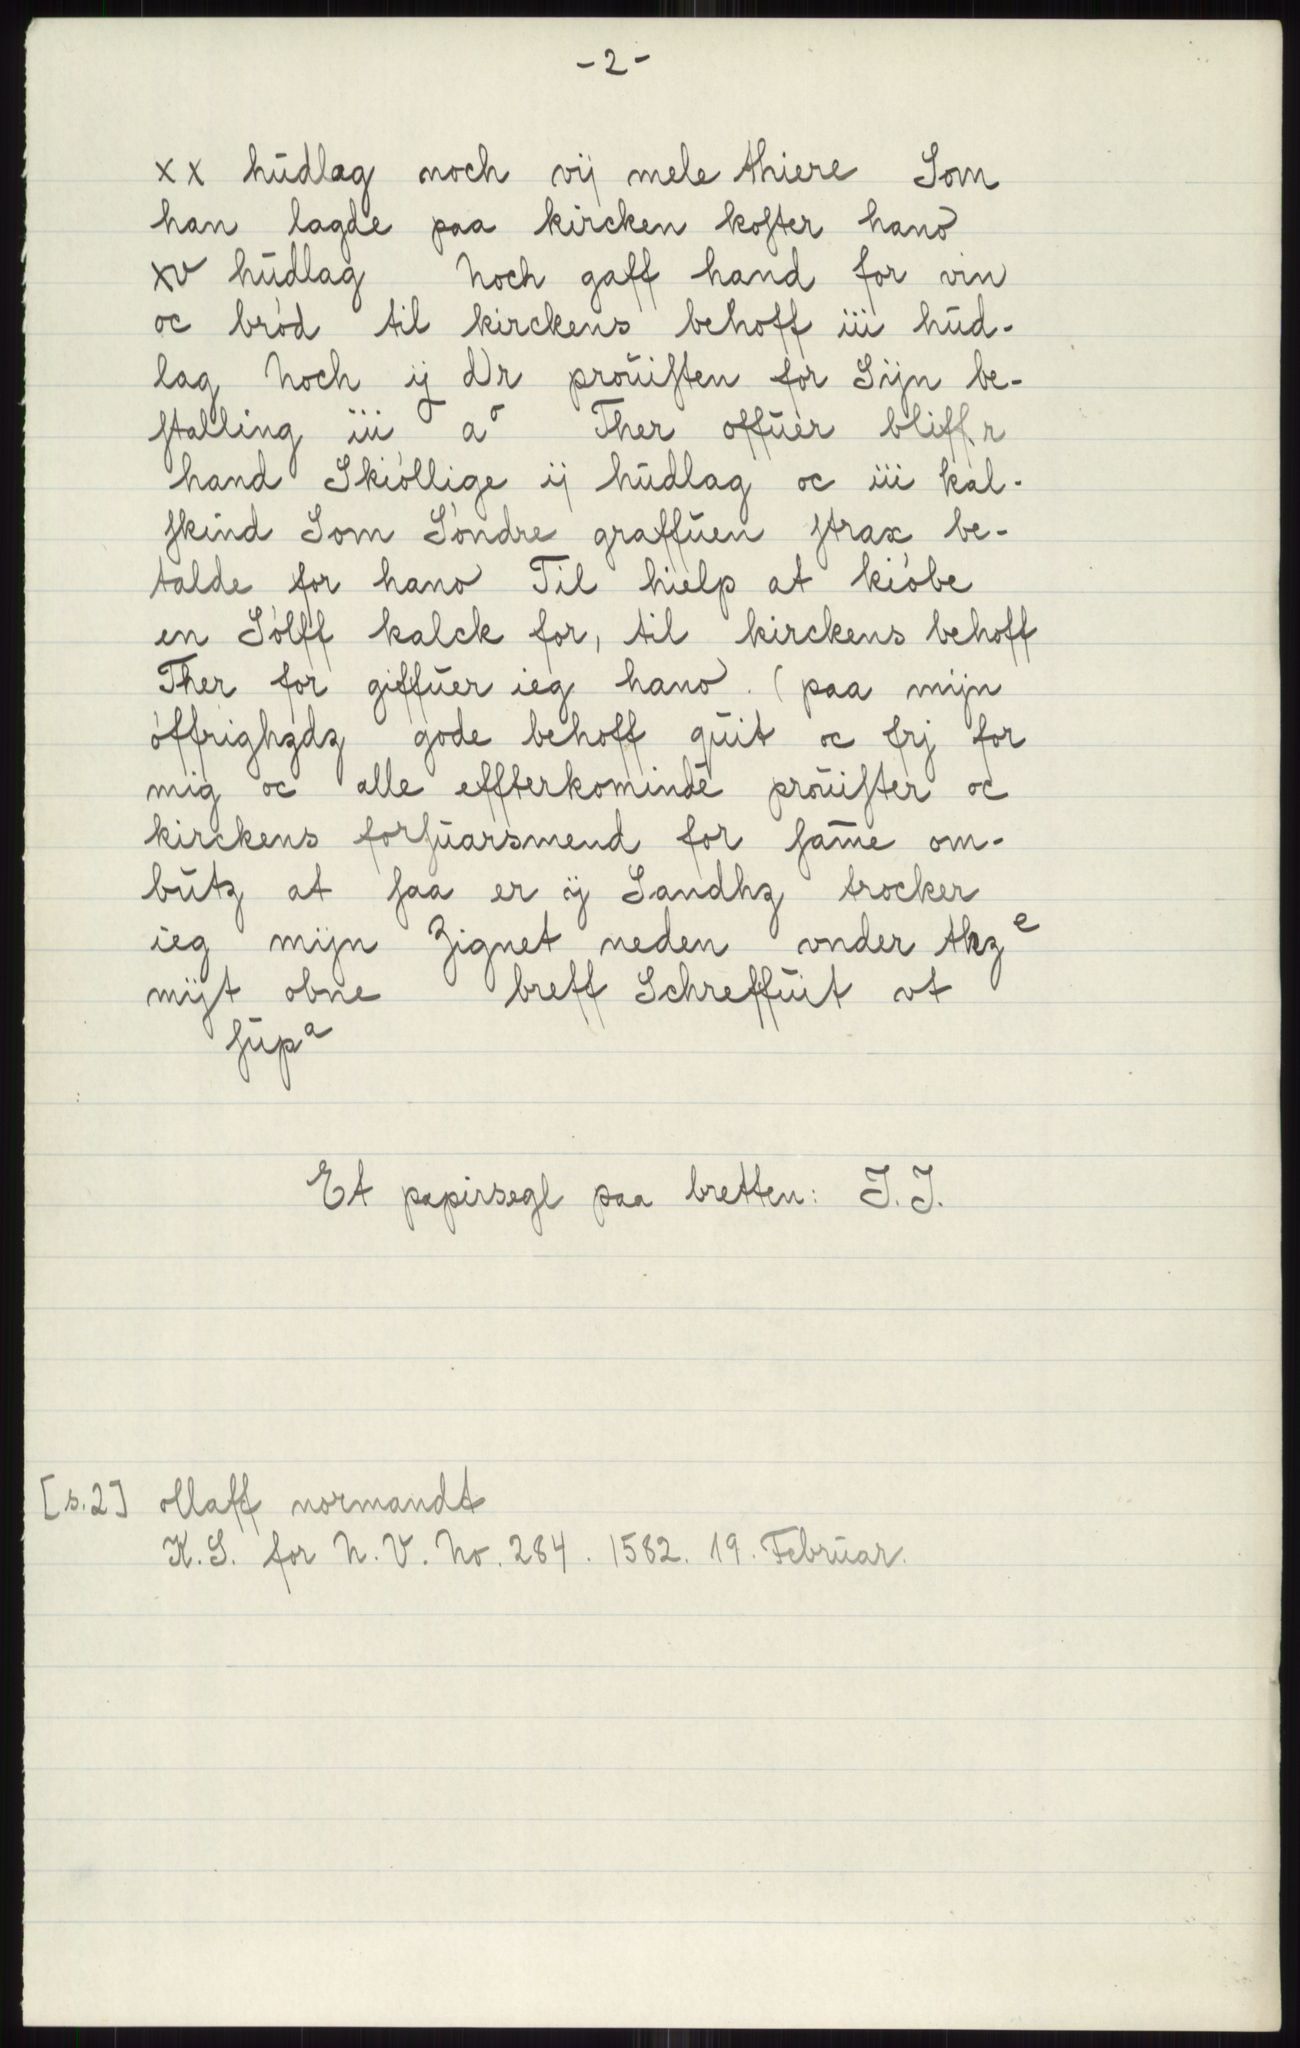 - 2 -
xx hudlag noch vij mele thiere Som
han lagde paa kircken koster hano
xv hudlag Noch gaff hand for vin
oc bród til kirckens behoff iii hud-
lag Noch ij dr prouisten for Sijn be-
stalling iii a Ther offuer bliffr
hand Skióllige ij hudlag oc iii kal-
skind Som Sóndre graffuen strax be-
talde for hano Til hielp at kióbe
en Sólff kalck for, til kirckens behoff
Ther for giffuer ieg hano. ( paa mijn
óffrighzdz gode behoff quit oc frj for
mig oc alle effterkominde prouister oc
kirckens forsuarsmend for same om-
butz at saa er ij Sandhz trocker
ieg mijn Zignet neden vnder thz e
mijt obne breff Schreffuit vt
sup a
Et papirsegl paa bretten: J. J.
[s. 2] ollaff normandt
K. S. for N. V. No. 284. 1582. 19. Februar.